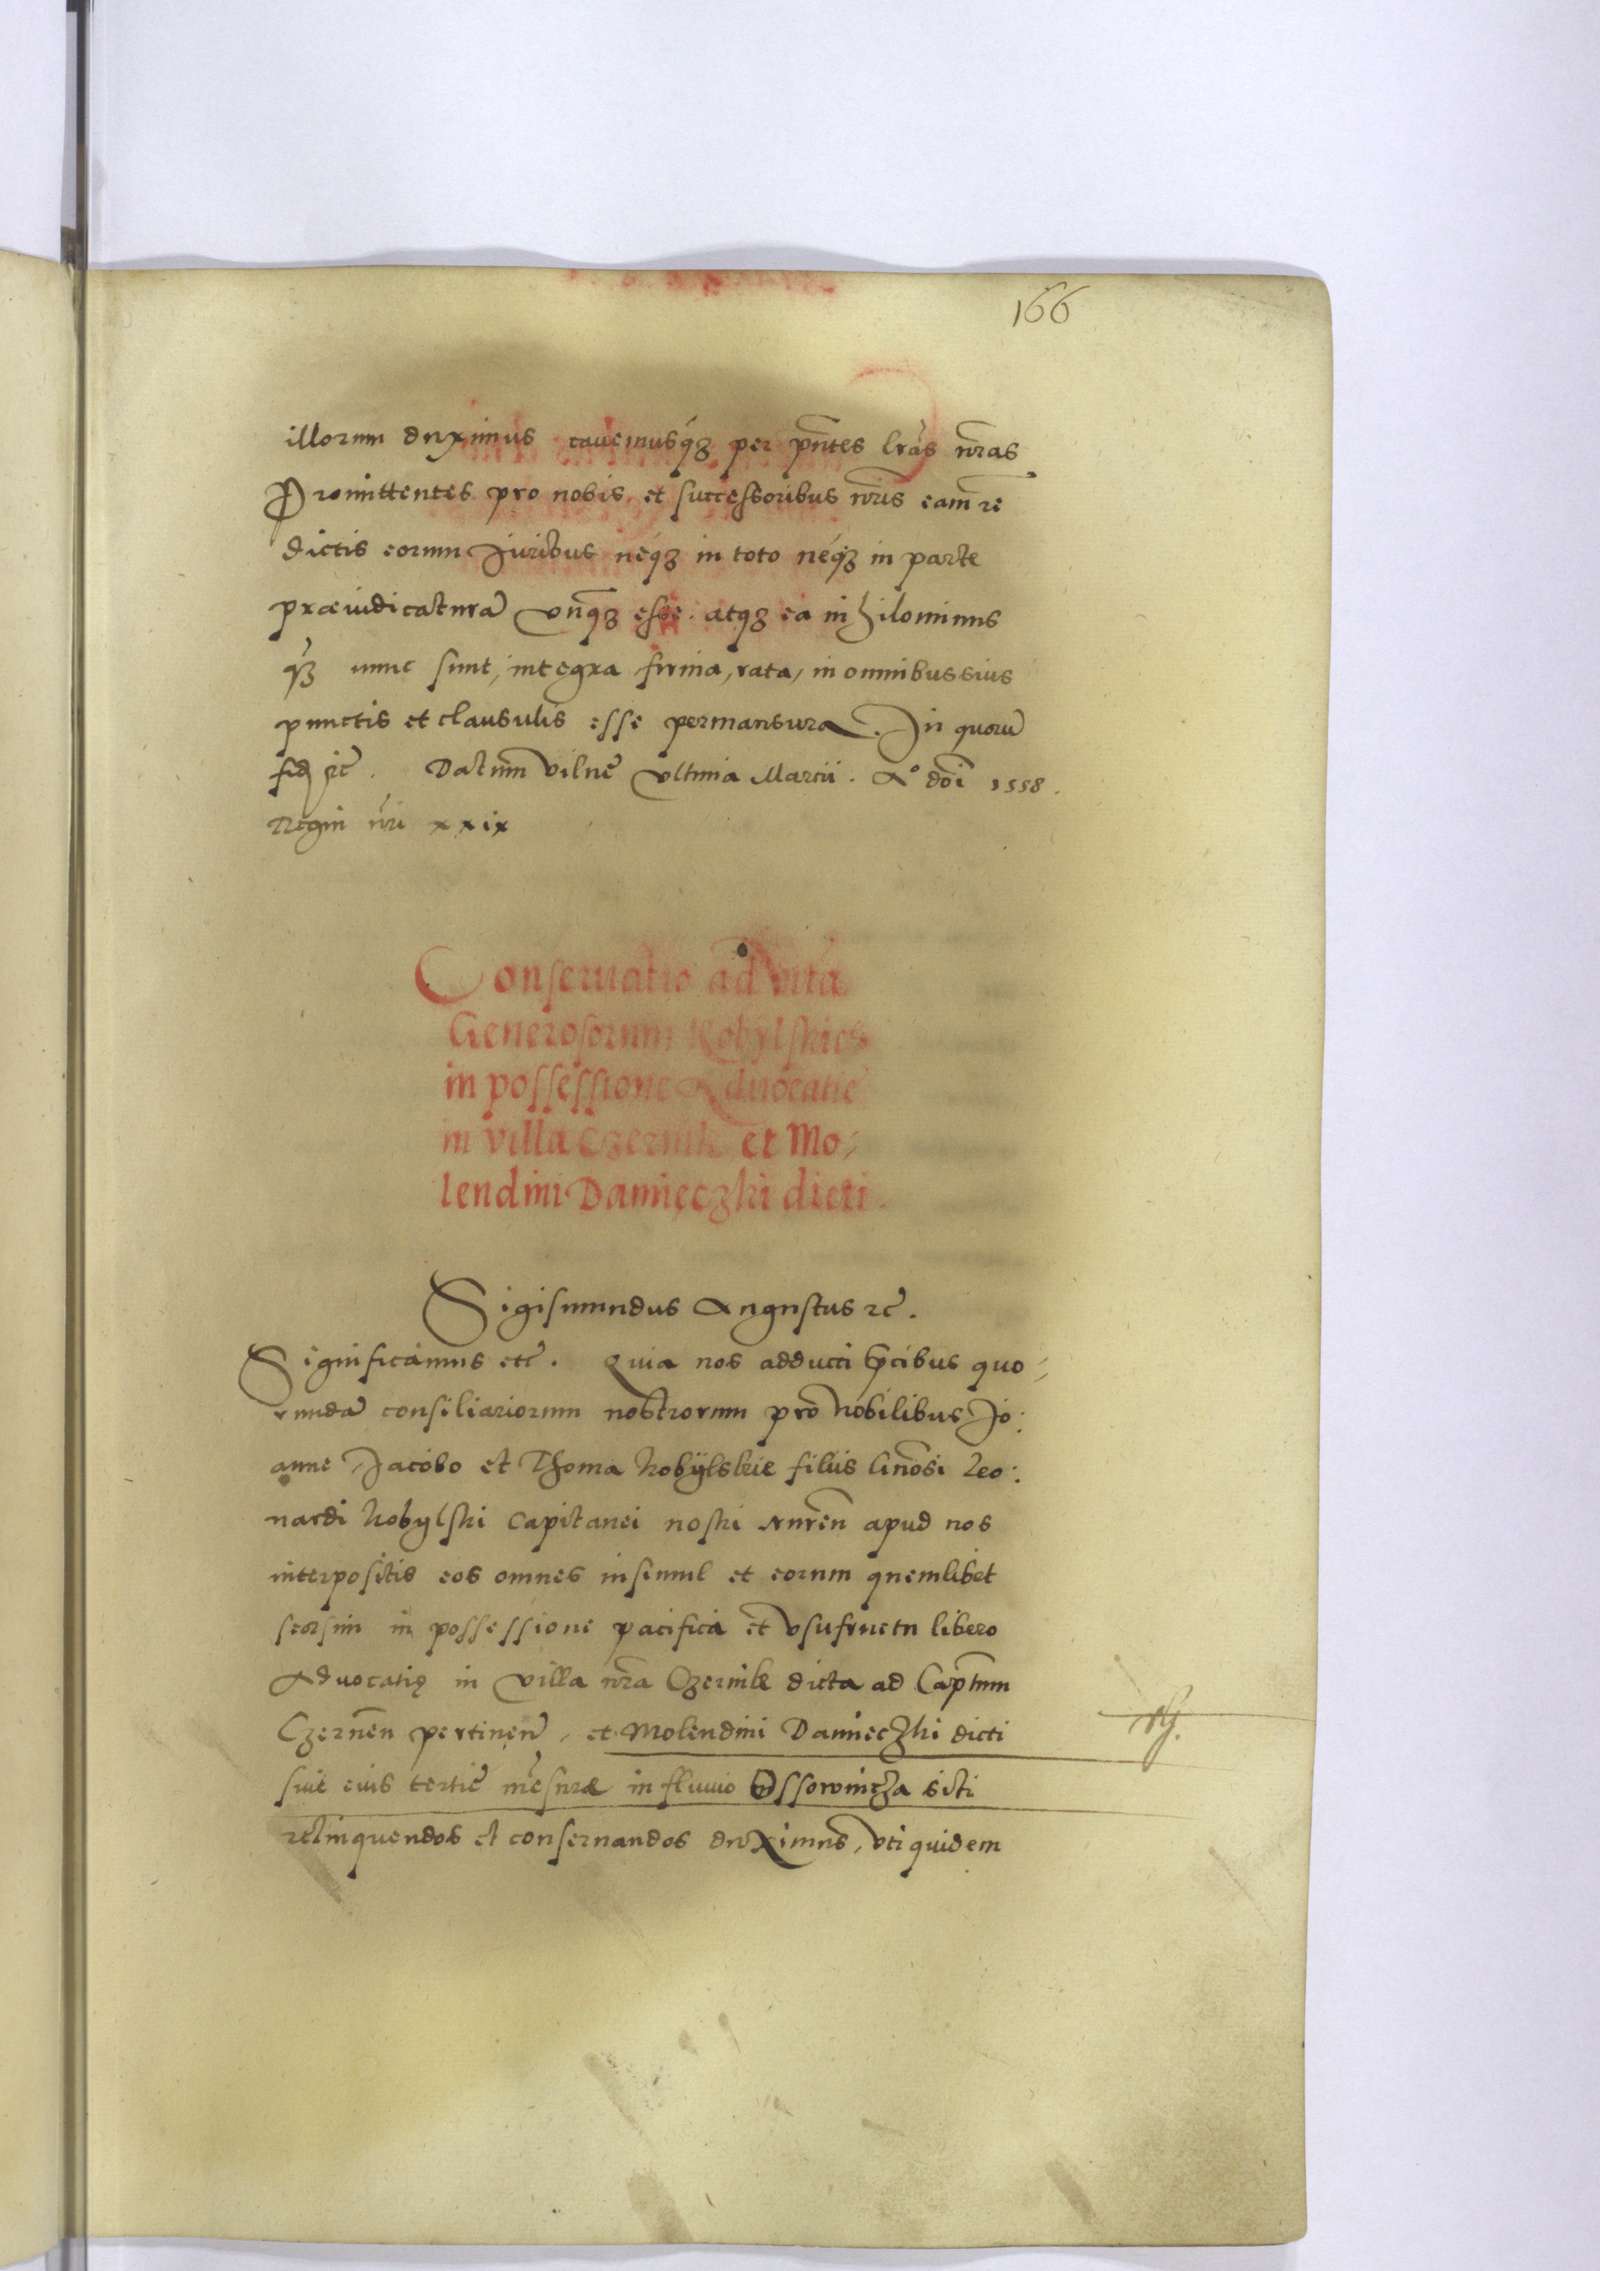 166
illorum duximus cavemusq́ʒ per pñtes lrãs nr̃as
Promittentes pro nobis, et successoribus nr̃is eam re
dictis eorum Juribus neq́ʒ in toto neq́ʒ in parte
præiudicaturã vnq̃ʒ esse. atqʒ ea nihilominus
nunc sunt, integra firma, rata, in omnibus suis
punctis et clausulis esse permansura. In quorũ
fid ꝛc̃. Datum vilnẽ vltima Marcii. Aº doĩ 1558.
Regni nr̃i xxix
Conseruatio ad vitã
Generosorum Kobylskies
in possessione Aduocatie
in villa Czernik et Mo,
lendini Damięczki dicti.
Sigismundus Augustus ꝛc̃.
Significamus etc̃. Quia nos adducti p̃cibus quo,
rundã consiliariorum nostrorum pro nobilibus Jo:
anne Jacobo et Thoma Kobÿlskie filiis Gñosi Leo:
nardi Kobylski Capitanei nostri apud nos
interpositis eos omnes insimul et eorum quemlibet
seorsim in possessione pacifica et vsufructu libero
Advocatię in villa nr̃a Czernik dicta ad Captnm
Czernẽn pertineñ, et Molendini Damieczki dicti
siue eius tertie mẽsuræ in fluuio Ossownicza siti
relinquendos et conseruandos duximus, vti quidem